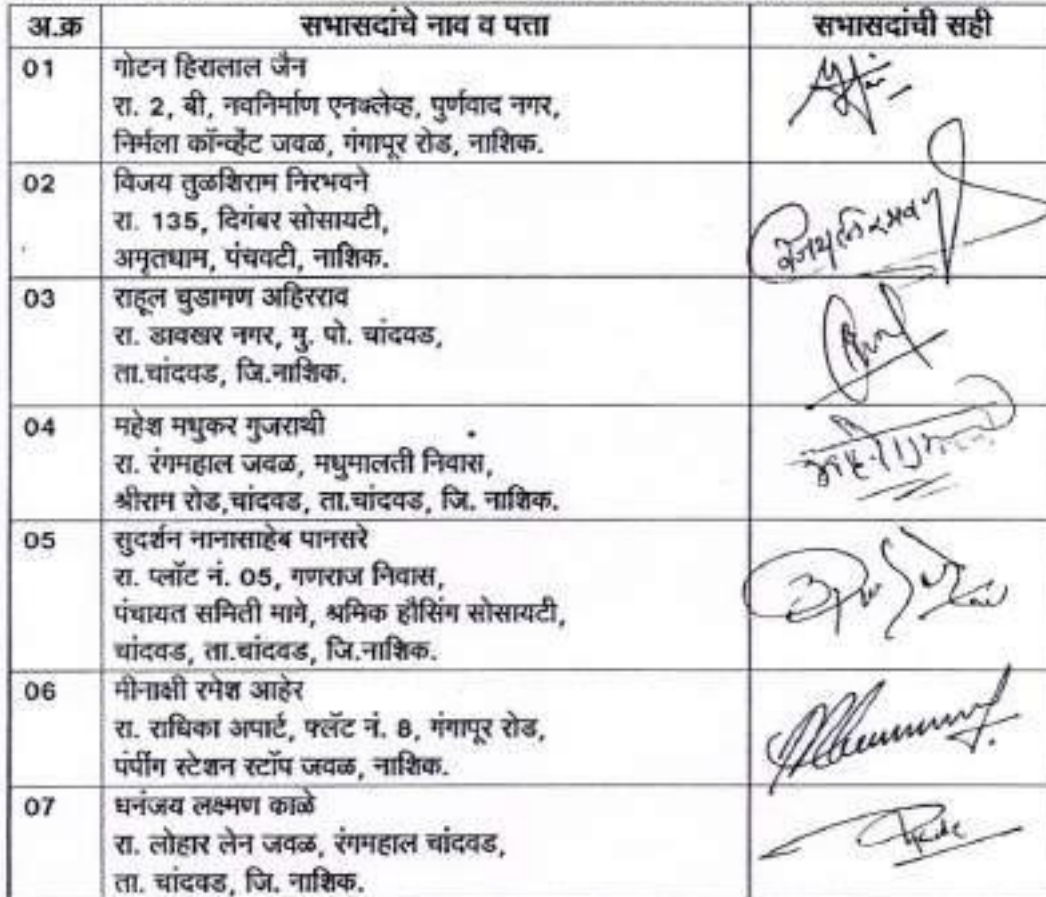 अ.क्र सभासदांचे नाव व पत्ता सभासदांची सही
01 गोटन हिरालाल जैन
रा. 2, बी, नवनिर्माण एनक्लेव्ह, पुर्णवाद नगर,
निर्मला कॉन्व्हेंट जवळ, गंगापूर रोड, नाशिक.
02 विजय तुळशिराम निरभवने
रा. 135, दिगंबर सोसायटी,
अमृतधाम, पंचवटी, नाशिक.
03 राहूल चुडामण अहिरराव
रा. डावखर नगर, मु. पो. चांदवड,
ता.चांदवड, जि.नाशिक.
04 महेश मधुकर गुजराथी
रा. रंगमहाल जवळ, मधुमालती निवास,
श्रीराम रोड,चांदवड, ता.चांदवड, जि. नाशिक.
05 सुदर्शन नानासाहेब पानसरे
रा. प्लॉट नं. 05, गणराज निवास,
पंचायत समिती मागे, श्रमिक हौसिंग सोसायटी,
चांदवड, ता.चांदवड, जि.नाशिक.
06 मीनाक्षी रमेश आहेर
रा. राधिका अपार्ट, फ्लॅट नं. 8, गंगापूर रोड,
पंपींग स्टेशन स्टॉप जवळ, नाशिक.
07 धनंजय लक्ष्मण काळे
रा. लोहार लेन जवळ, रंगमहाल चांदवड,
ता. चांदवड, जि. नाशिक.